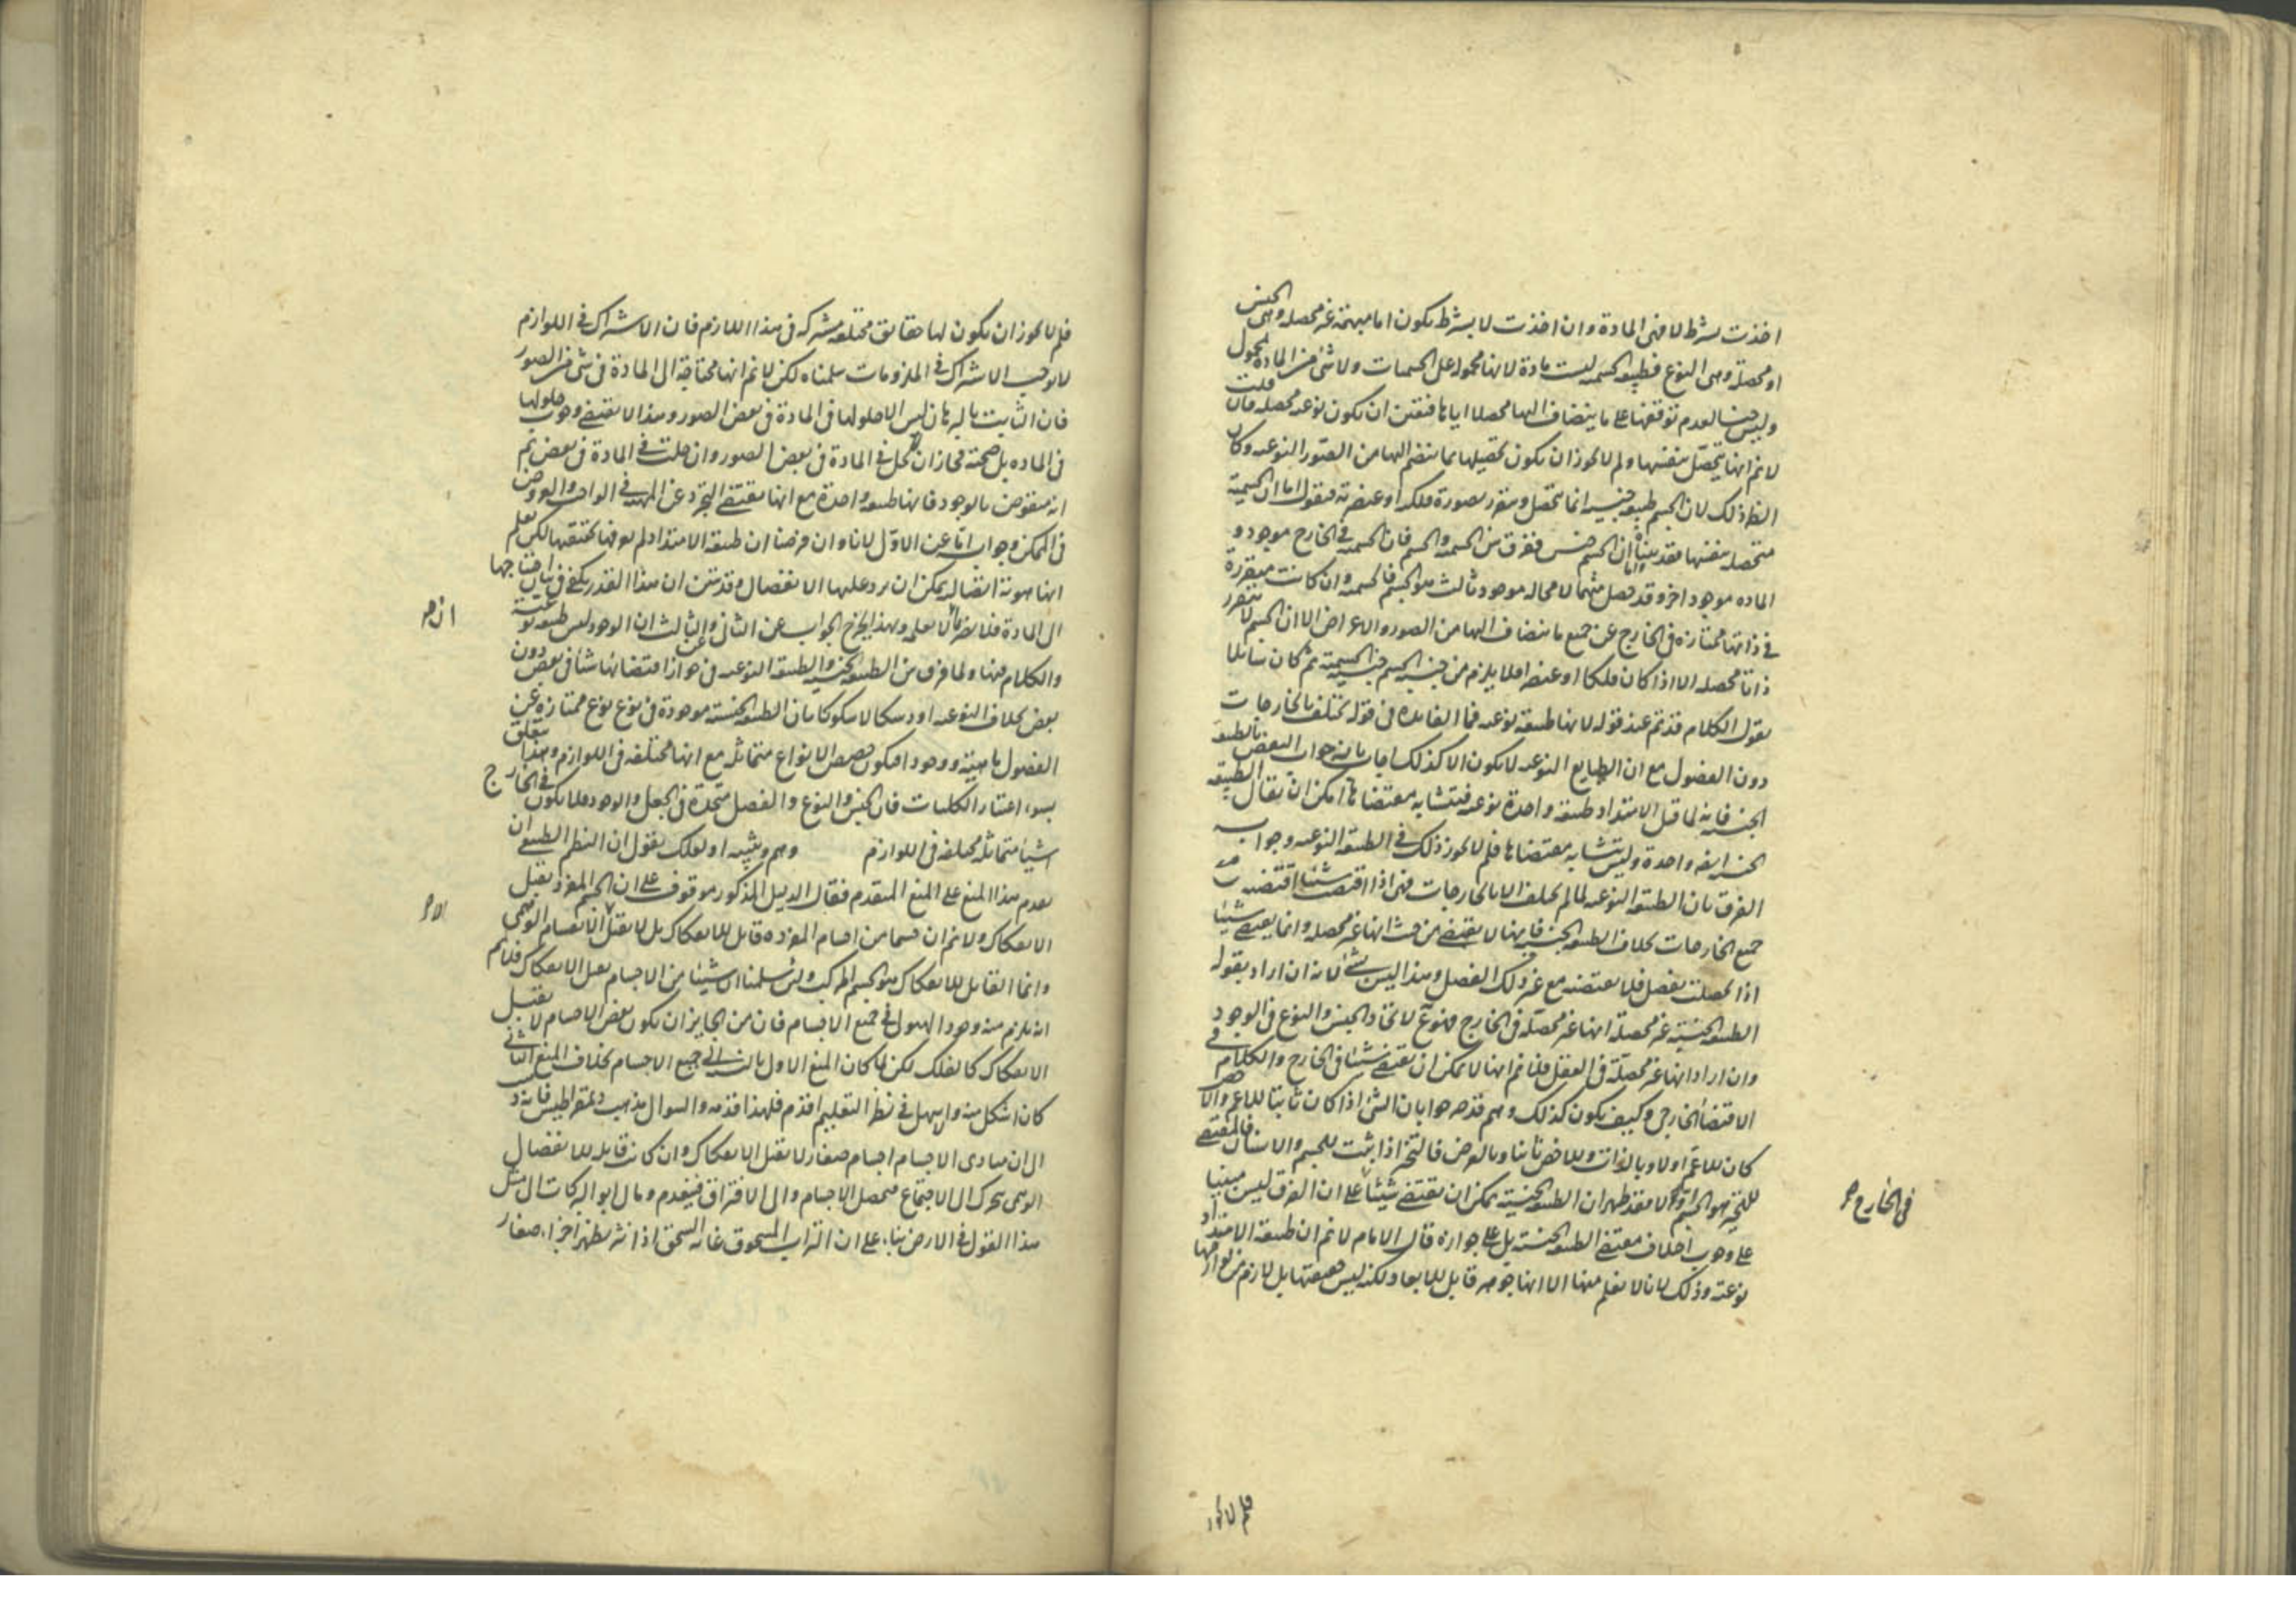 اخذت بشرط لا فهى المادة وان اخذت لا بشرط يكون اما مبهمة غير محصله وهى الجنس
او محصلة وهى النوع فطبيعه الجسميه ليست مادة لانها محموله على الجسمات ولا شئ من المادة بمحمول
وليس جنسا لعدم توقفها على ما ينضاف اليها محصلا اياها فتعين ان يكون نوعيه محصله فان قلت
لا نم انها يتحصل بنفسها ولم لا يجوز ان يكون تحصيلها بما ينضم اليها من الصور النوعيه وكان
النظر ذلك لان الجسم طبيعه جنسيه انما يتحصل ويتقرر بصورة فلكيه او عنصريه فنقول اما ان الجسمية
متحصله بنفسها فقد بيناه واما ان الجسم جنس ففرق بين الجسميه والجسم فان الجسميه فى الخارج موجود و
الماده موجود اخر وقد حصل منهما لا محاله موجود ثالث هو الجسم فالجسميه وان كانت متقررة
فى ذاتها ممتازه فى الخارج عن جميع ما ينضاف اليها من الصور والاعراض الا ان الجسم لا يتقرر
ذاتا محصله الا اذا كان فلكا او عنصرا فلا يلزم من جنسيه الجسم جنسية الجسمية ثم كان سائلا
يقول الكلام قد تم عند قوله لانها طبيعه نوعيه فما الفايده فى قوله تختلف بالخارجات
دون الفصول مع ان الطبايع النوعيه لا يكون الا كذلك اجاب بانه جواب النقض بالطبيعه
الجنسيه فانه لما قيل الامتداد طبيعه واحدة نوعيه فتتشابه مقتضاها امكن ان يقال الطبيعه
الجنسيه ايضا واحدة وليس يتشابه مقتضاها فلم لا يجوز ذلك فى الطبيعه النوعيه وجواب
الفرق بان الطبيعه النوعيه لما لم تختلف الا بالخارجات فهى اذا اقتضت شيئا اقتضته مع
جميع الخارجات بخلاف الطبيعه الجنسيه فانها لا يقتضى من حيث انها غير محصله وانما يقتضى شيئا
اذا تحصلت بفصل فلا يقتضيه مع غير ذلك الفصل وهذا ليس بشئ لانه ان اراد بقوله
الطبيعه الجنسيه غير محصلة انها غير محصله فى الخارج فهو مم لاتحاد الجنس والنوع فى الوجود
وان اراد انها غير محصلة فى العقل فلا نم انها لا يمكن ان يقتضى شيئا فى الخارج والكلام فى
الاقتضا الخارجى وكيف يكون كذلك وهم قد صرحوا بان الشئ اذا كان ثابتا للاعم والاخص
كان للاعم اولا وبالذات وللاخص ثانيا وبالعرض فالتحيز اذا يثبت للجسم والانسان فالمقتضى
للتحيز هو الجسم اولا فقد ظهر ان الطبيعه الجنسيه يمكن ان يقتضى شيئا على ان الفرق ليس مبنيا
على وجوب اختلاف مقتضى الطبيعه الجنسيه بل على جوازه قال الامام لا نم ان طبيعه الامتداد
نوعية وذلك لانا لا نعلم منها الا انها جوهر قابل للابعاد ولكنه ليس حقيقتها بل لازم من لوازمها
فى الخارج
فلم لا يجوز
فلم لا يجوز ان يكون لها حقايق مختلفه مشتركه فى هذا اللازم فان الاشتراك فى اللوازم
لا يوجب الاشتراك فى الملزومات سلمناه لكن لا نم انها محتاجة الى المادة فى شئ من الصور
فان الثابت بالبرهان ليس الا حلولها فى المادة فى بعض الصور وهذا لا يقتضى وجوب حلولها
فى الماده بل صحته فجاز ان يحل فى المادة فى بعض الصور وان حلت فى المادة فى بعض ثم
انه منقوض بالوجود فانها طبيعه واحدة مع انها يقتضى التجرد عن المهيه فى الواجب والعروض
فى الممكن وجواب اما عن الاول لانا وان فرضنا ان طبيعه الامتداد لم نعرفها بحقيقتها لكن نعلم
انها هوية اتصاليه يمكن ان يرد عليها الانفصال وقد تبين ان هذا القدر يكفى فى بيان احتياجها
الى المادة فلا يضر ما لا نعلمه وبهذا يخرج الجواب عن الثانى وعن الثالث ان الوجود ليس طبيعه نوعية
والكلام فيها ولما فرق بين الطبيعه الجنسيه والطبيعه النوعيه فى جواز اقتضائها شيئا فى بعض دون
بعض بخلاف النوعيه اورد شكا لا شكوكا بان الطبيعه الجنسيه موجودة فى نوع نوع ممتازه عن
الفصول ماهية ووجودا فيكون حصص الانواع متماثله مع انها مختلفه فى اللوازم وهذا يتعلق
بسوء اعتبار الكليات فان الجنس والنوع والفصل متحدة فى الجعل والوجود فلا يكون فى الخارج
اشيا متماثله مختلفه فى اللوازم وهم وتنبيه او لعلك يقول ان النظم الطبيعى ان
يقدم هذا المنع على المنع المتقدم فقال الدليل المذكور موقوف على ان الجسم المفرد يقبل
الانفكاك ولا نم ان جسما من اجسام المفرده قابل للانفكاك بل لا يقبل الا الانقسام الوهمى
وانما القابل للانفكاك هو الجسم المركب ولئن سلمنا ان شيئا من الاجسام يقبل الانفكاك فلا نم
انه يلزم منه وجود الهيولى فى جميع الاجسام فان من الجايز ان يكون بعض الاجسام لا يقبل
الانفكاك كالفلك لكن لما كان المنع الاول بالنسبة الى جميع الاجسام بخلاف المنع الثانى
كان اشكل منه والاسهل فى نظر التعليم اقدم فلهذا قدمه والسوال مذهب ذيمقراطيس فانه ذهب
الى ان مبادى الاجسام اجسام صغار لا يقبل الانفكاك وان كانت قابله للانفصال
الوهمى يتحرك الى الاجتماع فيحصل الاجسام والى الافتراق فينعدم ومال ابو البركات الى مثل
هذا القول فى الارض بناء على ان التراب المسحوق غاية السحق اذا نثر يظهر اجزاء صغار